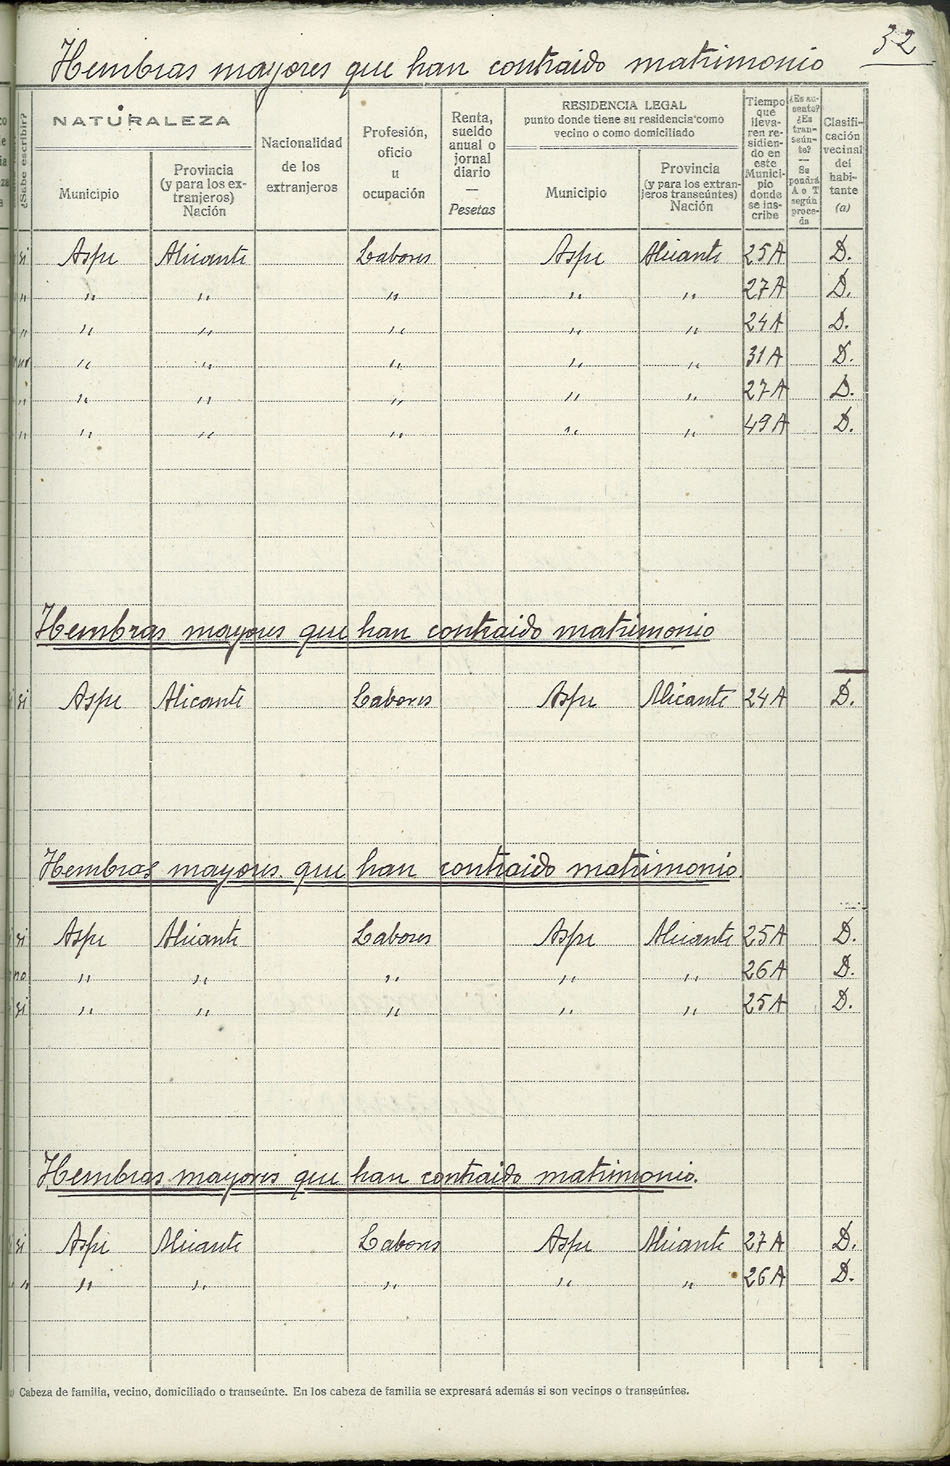 32
Hembras mayores que han contraido matrimonio
¿Sabe escribir?
NATURALEZA
Municipio
Provincia (y para los extranjeros) Nación
Nacionalidad de los extranjeros
Profesión, oficio u ocupación
Renta, sueldo anual o jornal diario — Pesetas
RESIDENCIA LEGAL
punto donde tiene su residencia como vecino o como domiciliado
Municipio
Provincia (y para los extranjeros transeúntes) Nación
Tiempo que llevaren residiendo en este Municipio donde se inscribe
¿Es ausente? ¿Es transeúnte? — Se pondrá A o T según proceda
Clasificación vecinal del habitante (a)
si Aspe Alicante Labores Aspe Alicante 25 A D.
" " " " " " 27 A D.
" " " " " " 24 A D.
" " " " " 31 A D.
" " " " " " 27 A D.
" " " " " " 49 A D.
Hembras mayores que han contraido matrimonio
si Aspe Alicante Labores Aspe Alicante 24 A D.
Hembras mayores que han contraido matrimonio.
si Aspe Alicante Labores Aspe Alicante 25 A D.
no " " " " " 26 A D.
si " " " " " 25 A D.
Hembras mayores que han contraido matrimonio.
si Aspe Alicante Labores Aspe Alicante 27 A D.
" " " " " " 26 A D.
Cabeza de familia, vecino, domiciliado o transeúnte. En los cabeza de familia se expresará además si son vecinos o transeúntes.